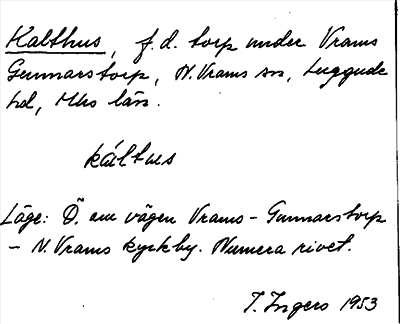 Kalthus, f.d. torp under Vrams
Gunnarstorp, N. Vrams sn, Luggude
hd, Mhs län.
káltus
Läge: Ö. om vägen Vrams-Gunnarstorp
- N. Vrams kyrkby. Numera rivet.
T. Ingers 1953